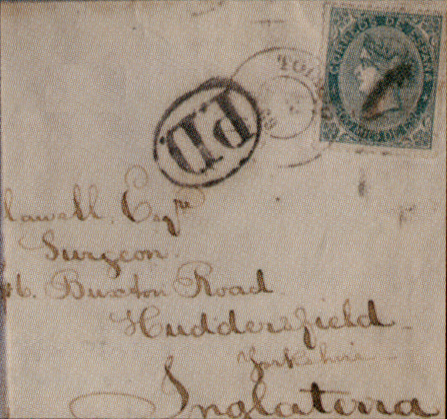 CORREOS DE ESPAÑA
PD
Esqre
Surgeon.
Buxton Road
Huddersfield
Yorkshire
Inglaterra